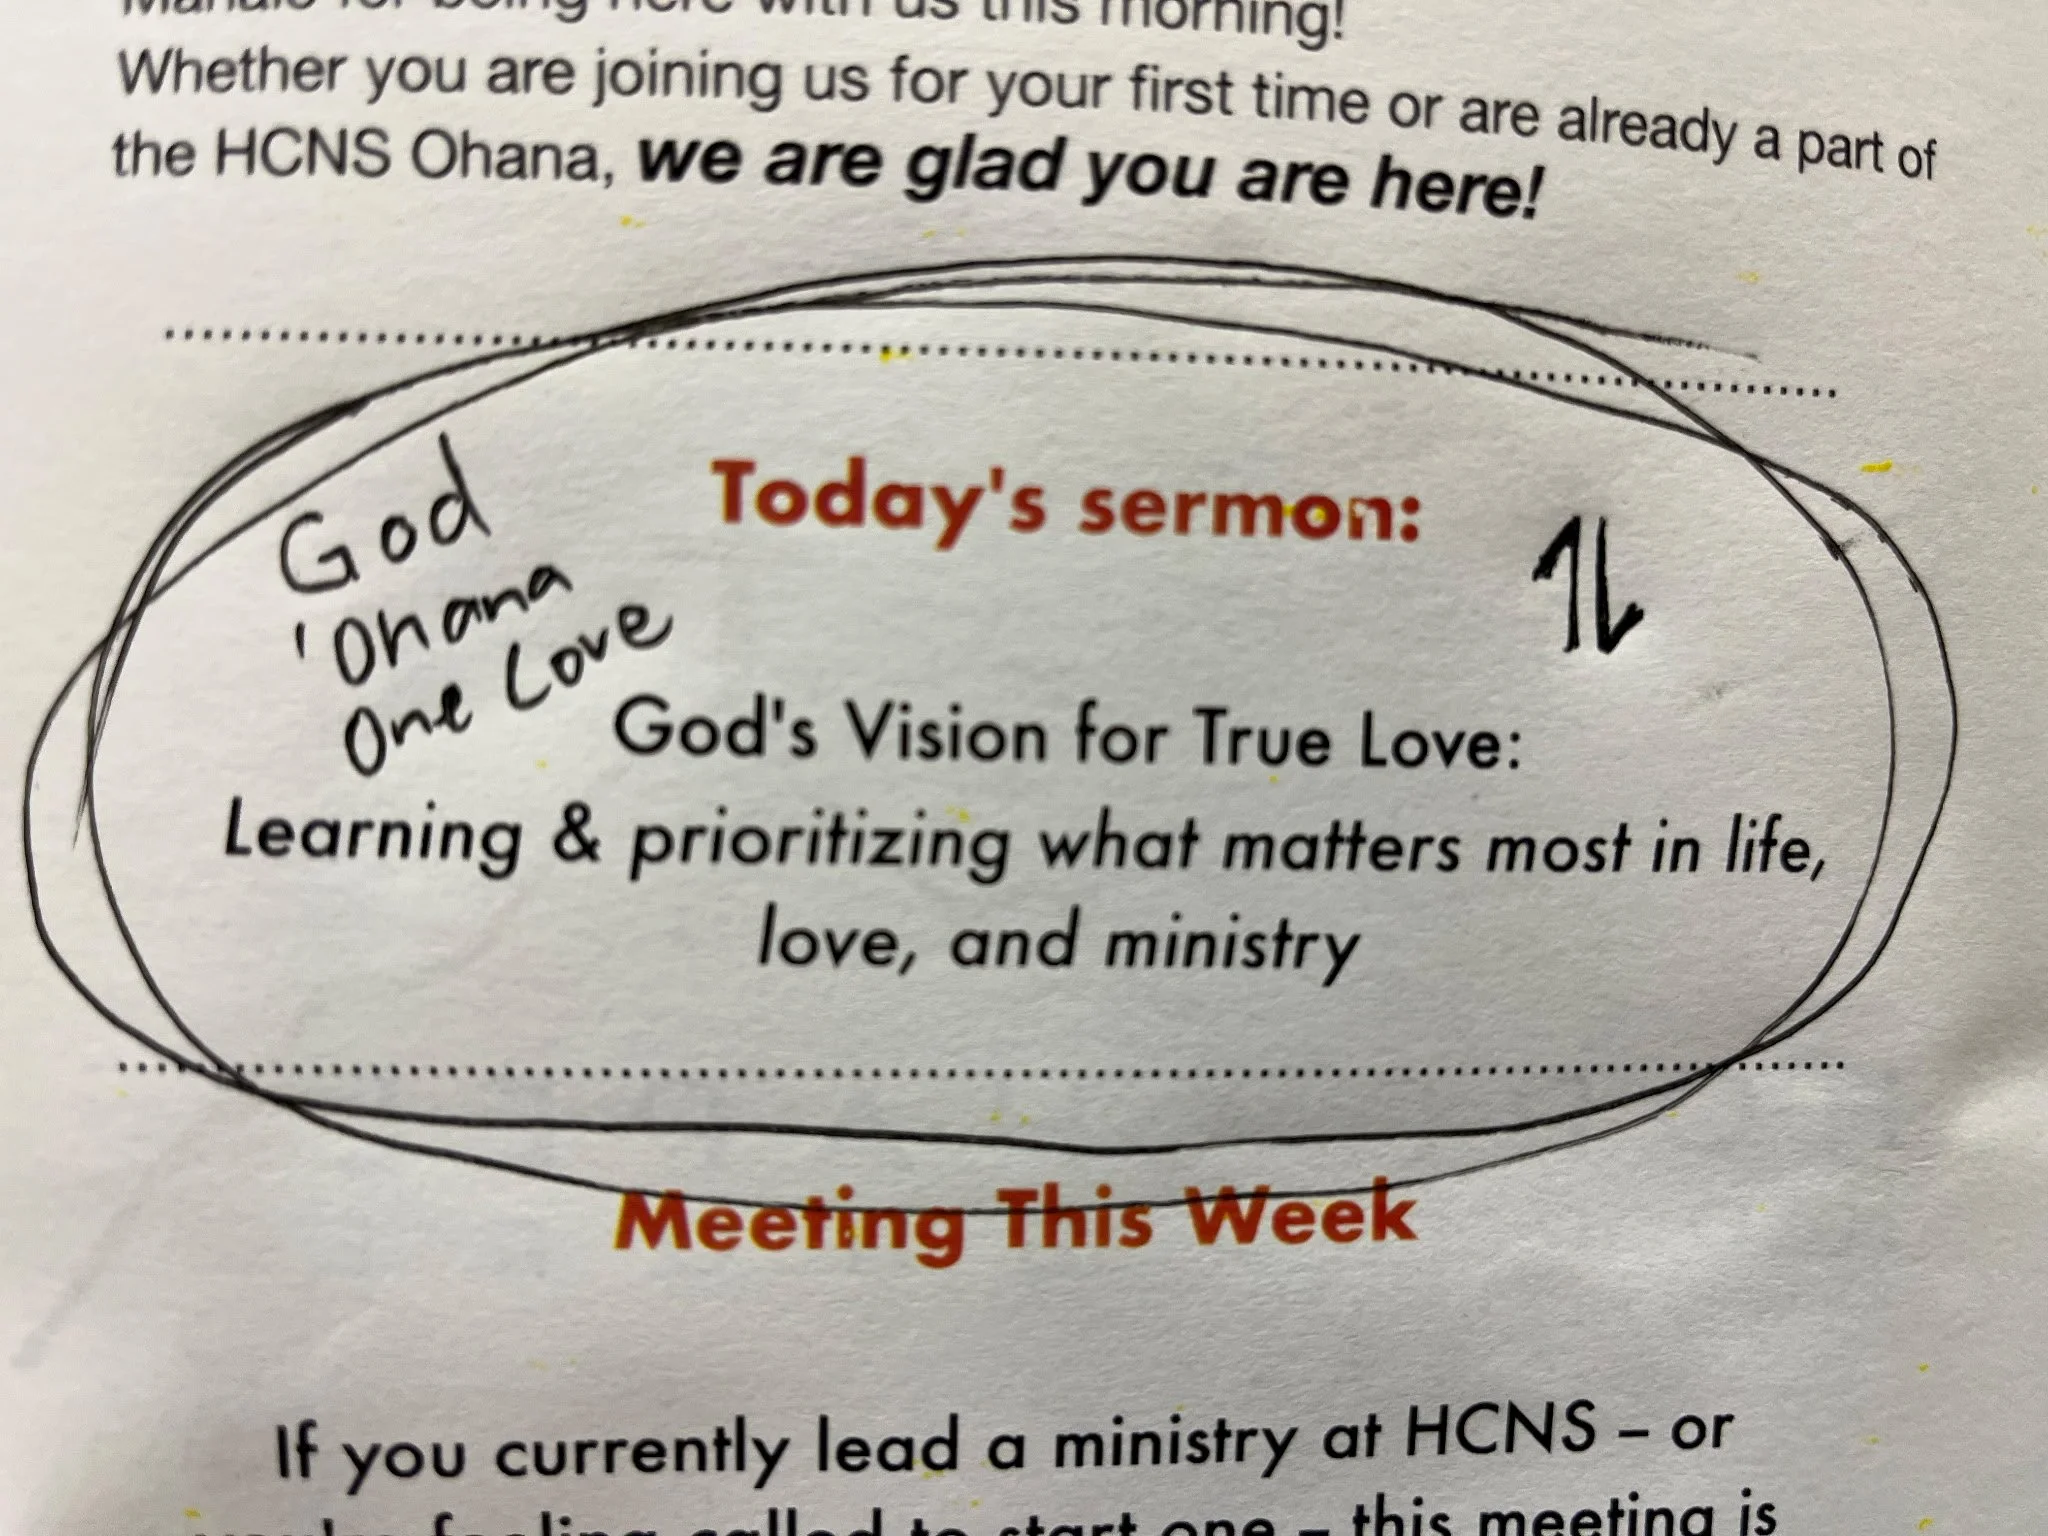 Mahalo for being here with us this morning!
Whether you are joining us for your first time or are already a part of
the HCNS Ohana, we are glad you are here!
Today's sermon:
God
'Ohana
One Love
God's Vision for True Love:
Learning & prioritizing what matters most in life,
love, and ministry
Meeting This Week
If you currently lead a ministry at HCNS – or
you're feeling called to start one – this meeting is